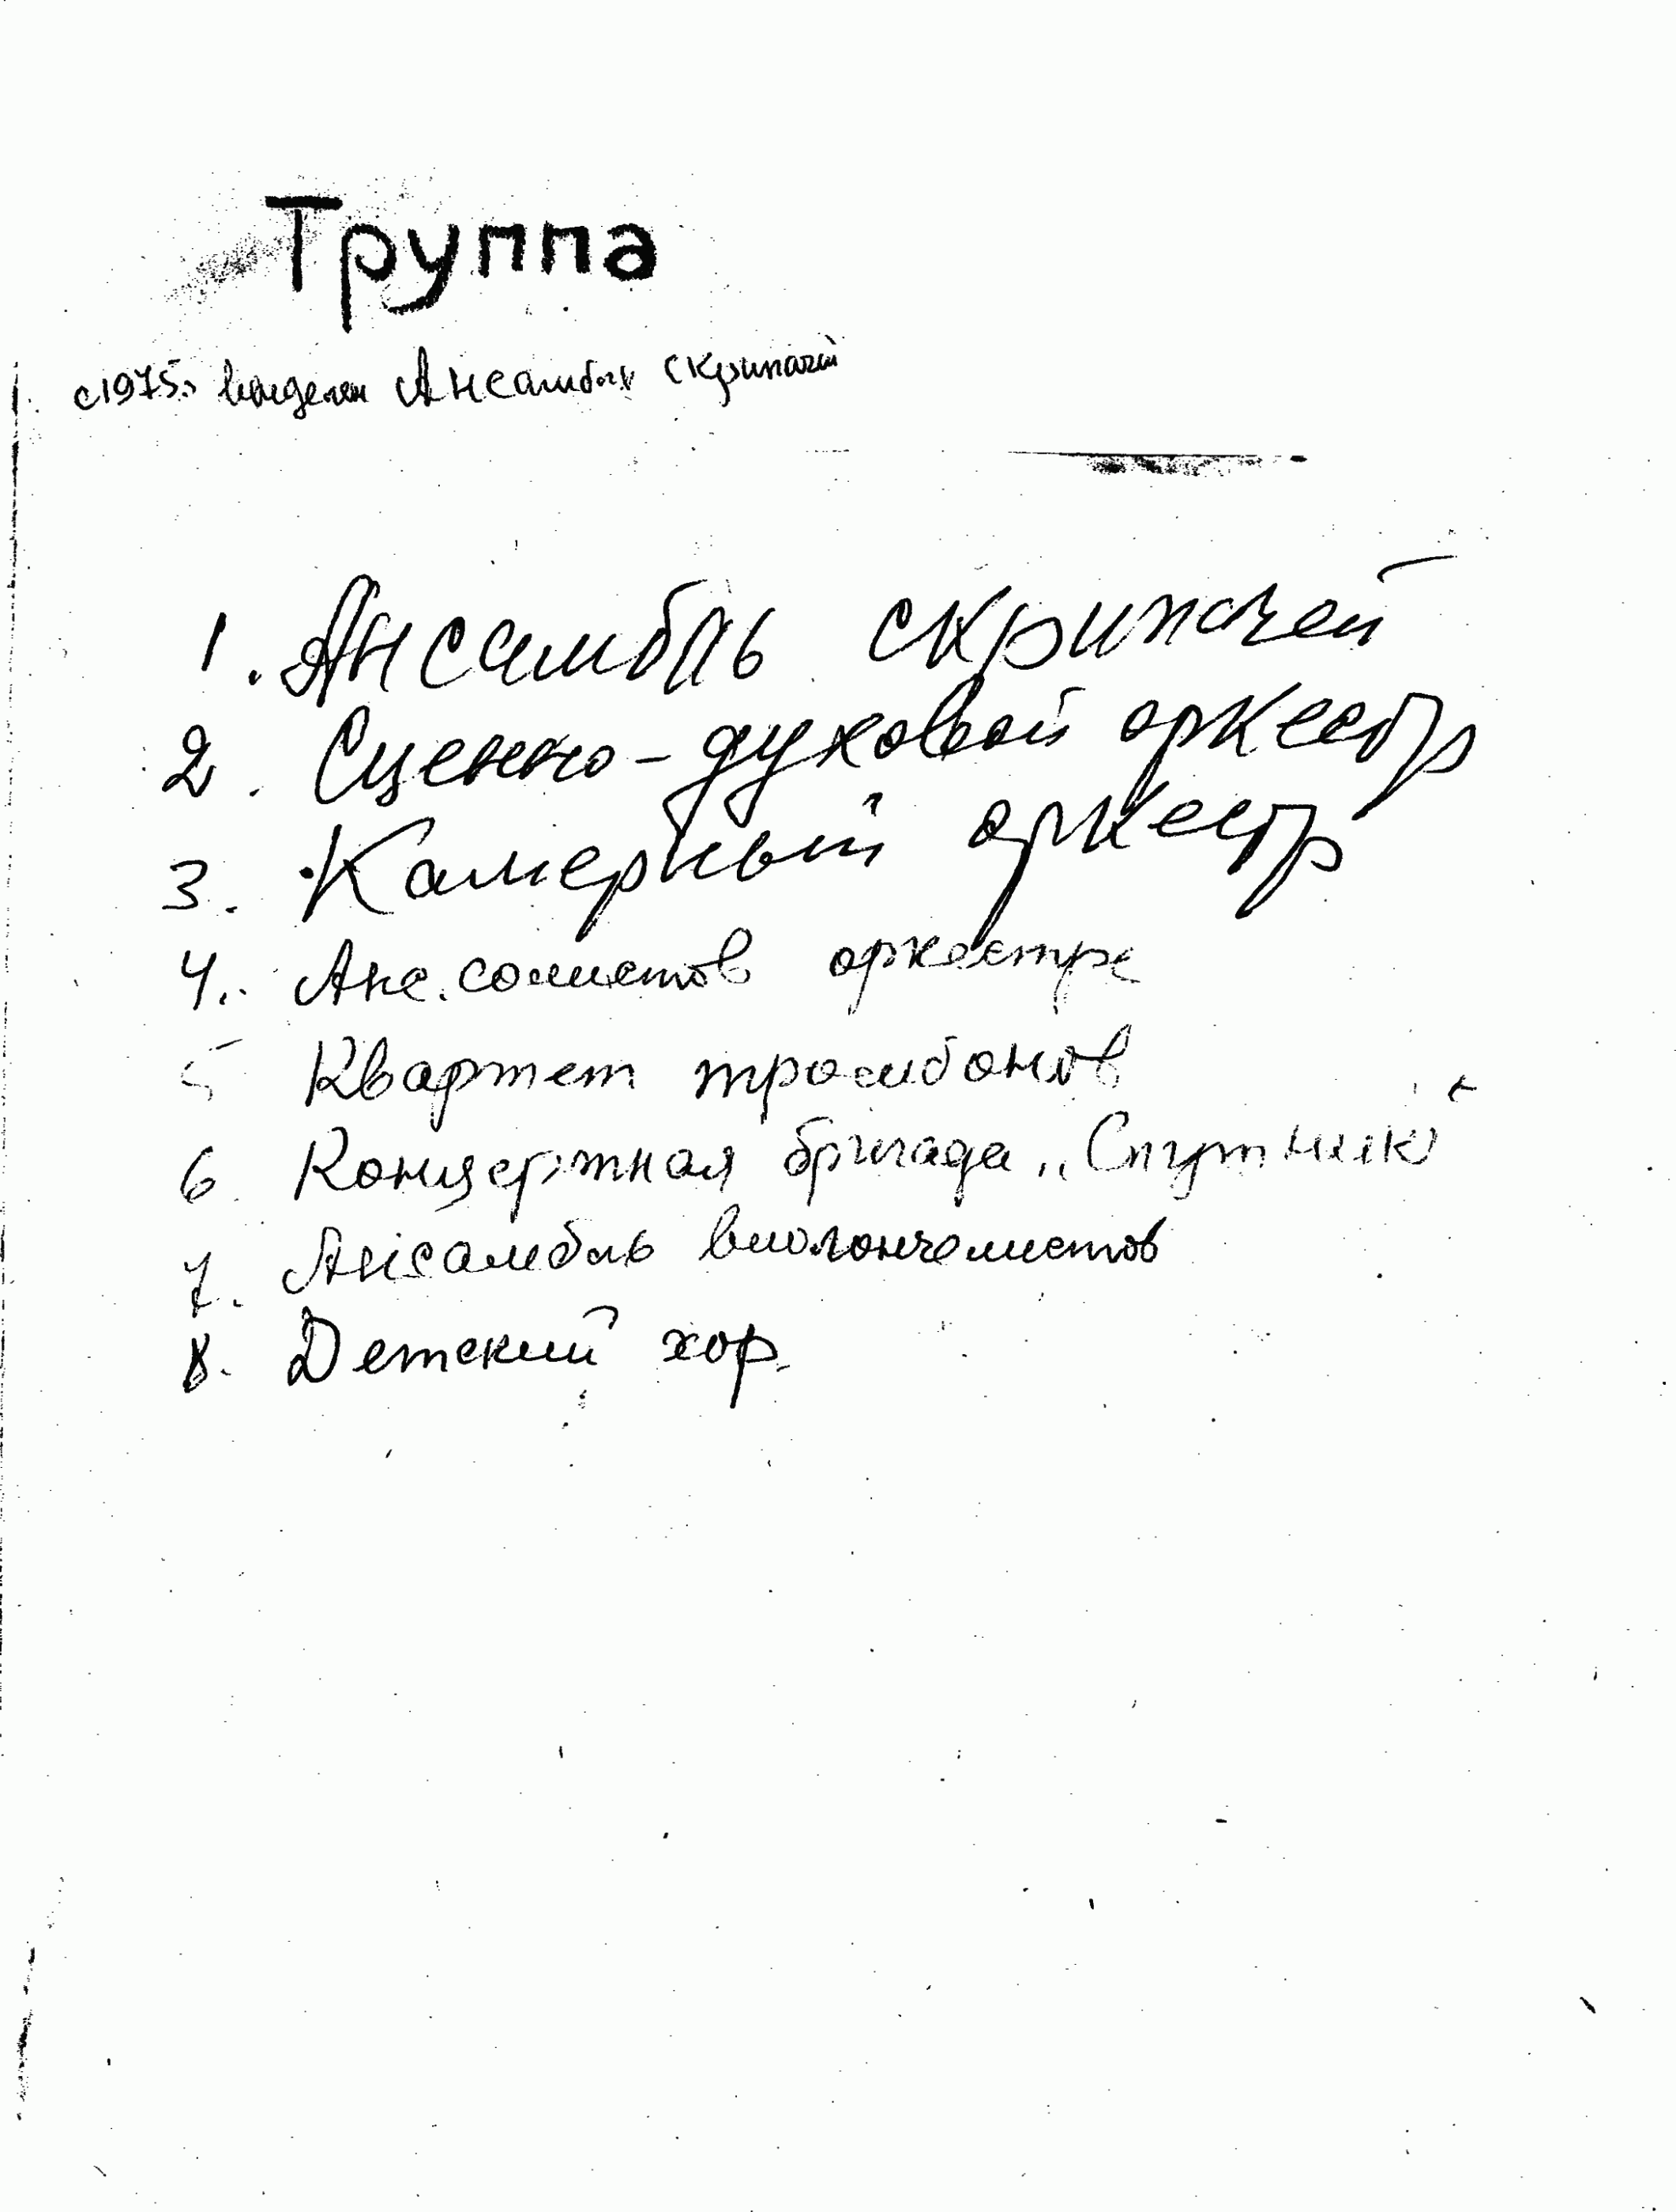 Труппа
с 1975г. выделен Ансамбль скрипачей
1. Ансамбль скрипачей
2. Сценно-духовой оркестр
3. Камерный оркестр
4. Анс. солистов оркестра
5 Квартет тромбонов
6 Концертная бригада „Спутник“
7. Ансамбль виолончелистов
8. Детский хор.